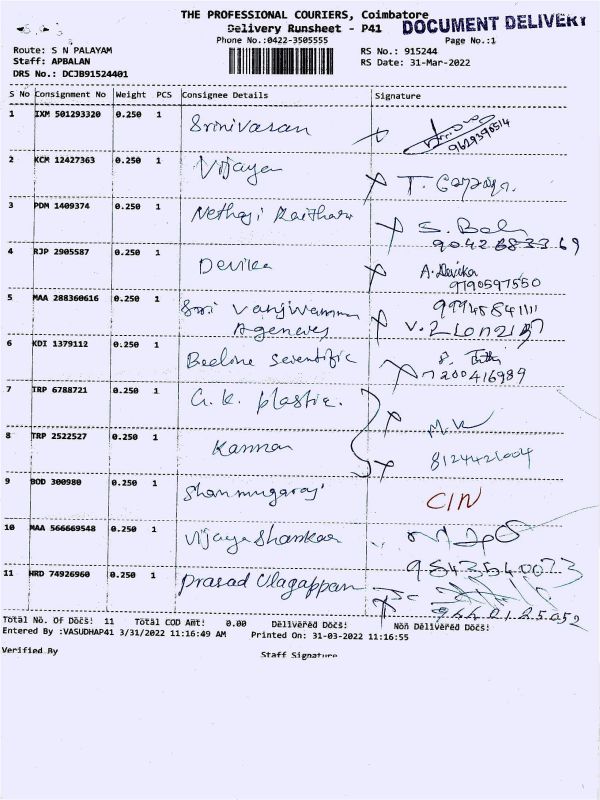 THE PROFESSIONAL COURIERS, Coimbatore
DOCUMENT DELIVERY
Delivery Runsheet - P41
Phone No.:0422-3505555
Page No.:1
Route: S N PALAYAM
RS No.: 915244
Staff: APBALAN
RS Date: 31-Mar-2022
DRS No.: DCJB91524401
S No Consignment No Weight PCS Consignee Details Signature
1 IXM 501293320 0.250 1 Srinivasan
9629390514
2 KCM 12427363 0.250 1 Vijaya
3 PDM 1409374 0.250 1 Nethaji S. Bala
9042683369
4 RJP 2905587 0.250 1 Devika A. Devika
9790597550
5 MAA 288360616 0.250 1 Sri
6 KDI 1379112 0.250 1 Beelone Scientific
7200416989
7 TRP 6788721 0.250 1 G.K. Plastic. M.K
8 TRP 2522527 0.250 1 Kannan 8124421004
9 BOD 300980 0.250 1 Shanmugaraj CIN
10 MAA 566669548 0.250 1 Vijaya Shankar
9543540073
11 HRD 74926960 0.250 1 Prasad Ulagappan
9442125052
Total No. Of Docs: 11 Total COD Amt: 0.00 Delivered Docs: Non Delivered Docs:
Entered By :VASUDHAP41 3/31/2022 11:16:49 AM Printed On: 31-03-2022 11:16:55
Verified By Staff Signature